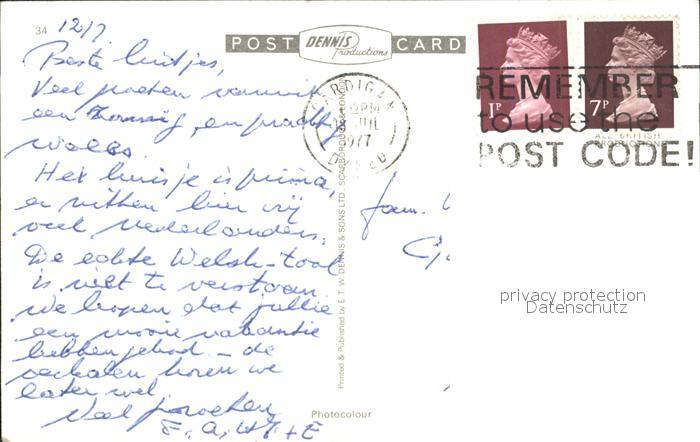 34 12/7
POST DENNIS Productions CARD
Beste luitjes,
Veel groeten vanuit
een zonnig, en prachtig
Wales.
Het huisje is prima,
er zitten hier vrij
veel Nederlanders.
De echte Welsh-taal
is niet te verstaan
We hopen dat jullie
een mooie vakantie
hebben gehad – de
verhalen horen we
later wel.
Veel groeten
CARDIGAN
PM
JUL
1977
DYFED
1P
7P
REMEMBER
to use the
POST CODE!
ALL BRITISH
PRODUCTION
fam.
Printed & Published by E. T. W. DENNIS & SONS LTD., SCARBOROUGH & LONDON
privacy protection
Datenschutz
Photocolour